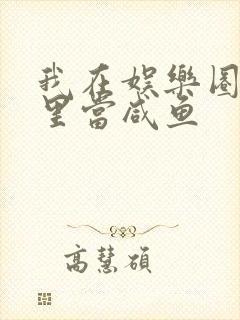 我在娱樂圈
里當咸鱼
高慧碩